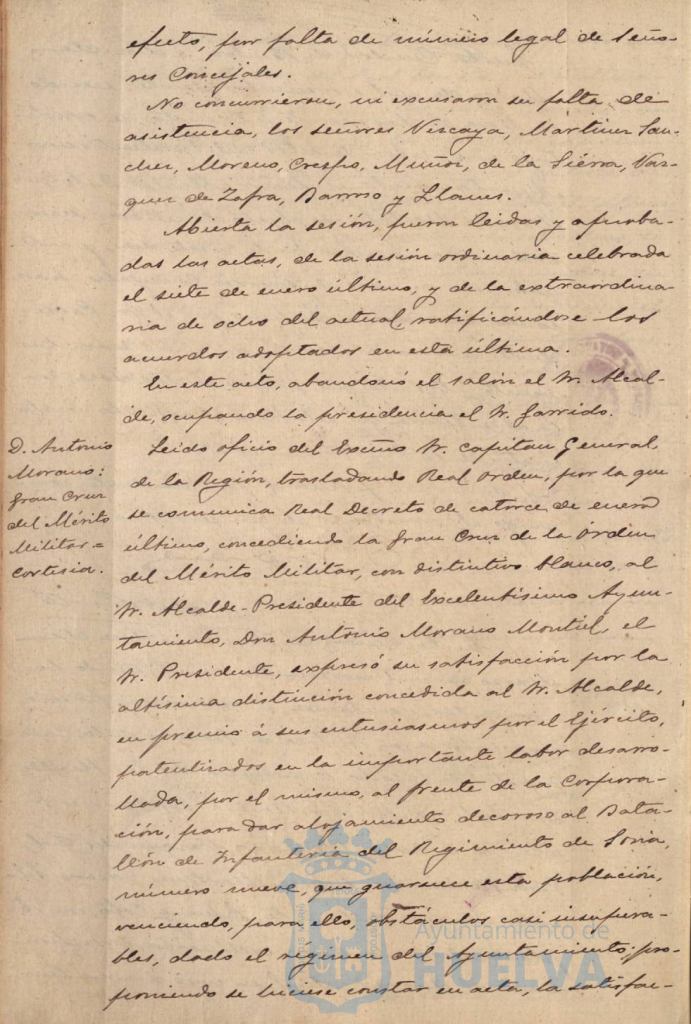 efecto, por falta de número legal de Seño-
res Concejales.
No concurrieron, ni excusaron su falta de
asistencia, los señores Vizcaya, Martinez San-
chez, Moreno, Crespo, Muñoz, de la Sierra, Vaz-
quez de Zafra, Barroso y Llanes.
Abierta la sesión, fueron leidas y aproba-
das las actas, de la sesión ordinaria celebrada
el siete de enero último, y de la extraordina-
ria de ocho del actual, ratificándose los
acuerdos adoptados en esta última.
En este acto, abandonó el salón el Sr. Alcal-
de, ocupando la presidencia el Sr. Garrido.
D. Antonio
Morano:
Gran Cruz
del Mérito
Militar =
Cortesia.
Leido oficio del Excmo Sr. Capitan General
de la Región, trasladando Real Orden, por la que
se comunica Real Decreto de catorce de enero
último, concediendo la Gran Cruz de la Orden
del Mérito Militar, con distintivo blanco, al
Sr. Alcalde-Presidente del Excelentísimo Ayun-
tamiento, Don Antonio Morano Montiel, el
Sr. Presidente, expresó su satisfacción por la
altísima distinción concedida al Sr. Alcalde,
en premio á sus entusiasmos por el Ejército,
patentizados en la importante labor desarro-
llada, por el mismo, al frente de la Corpora-
ción, para dar alojamiento decoroso al Bata-
llón de Infanteria del Regimiento de Soria,
número nueve, que guarnece esta población,
venciendo, para ello, obstáculos casi insupera-
bles, dado el régimen del Ayuntamiento; pro-
poniendo se hiciese constar en acta, la satisfac-
Ayuntamiento de
HUELVA